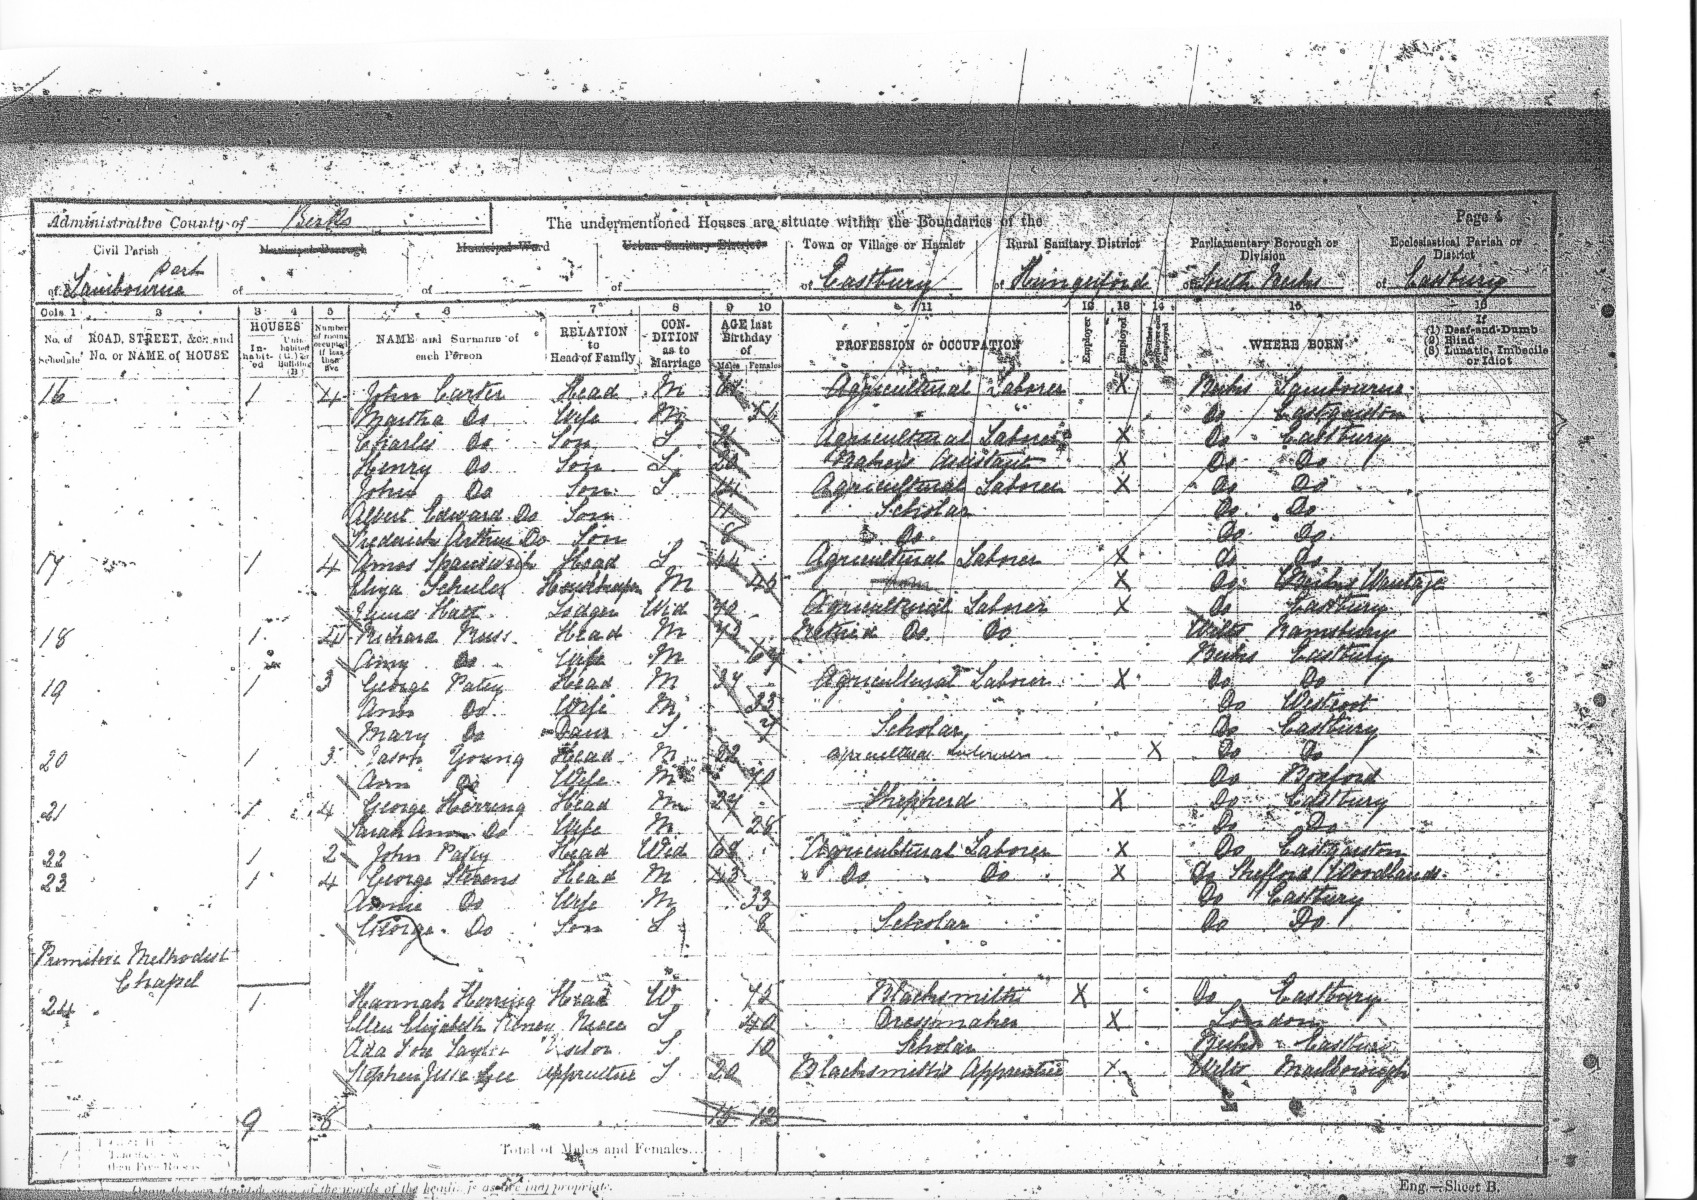 Administrative County of Berks
The undermentioned Houses are situate within the Boundaries of the
Page 4
Civil Parish
Municipal Borough
Municipal Ward
Urban Sanitary District
Town or Village or Hamlet
Rural Sanitary District
Parliamentary Borough or Division
Ecclesiastical Parish or District
part
of Lambourne of of of of Eastbury of Hungerford of South Berks of Eastbury
Cols. 1 2 3 4 5 6 7 8 9 10 11 12 13 14 15 16
No. of Schedule
ROAD, STREET, &c., and No. or NAME of HOUSE
HOUSES
In-habit-ed
Un-inhabited (U.) or Building (B.)
Number of rooms occupied if less than five
NAME and Surname of each Person
RELATION to Head of Family
CON-DITION as to Marriage
AGE last Birthday of
Males Females
PROFESSION or OCCUPATION
Employer
Employed
Neither Employer nor Employed
WHERE BORN
If
(1) Deaf-and-Dumb
(2) Blind
(3) Lunatic, Imbecile or Idiot
16 1 4 John Carter Head M Agricultural Laborer X Berks Lambourne
Martha Do Wife M Do Eastgarston
Charles Do Son S Agricultural Laborer X Do Eastbury
Henry Do Son S 20 Assistant X Do Do
John Do Son S 14 Agricultural Laborer X Do Do
Albert Edward Do Son 11 Scholar Do Do
Frederick Arthur Do Son 8 Do Do Do
17 1 4 Amos Head S 44 Agricultural Laborer X Do Do
Eliza Housekeeper M X Do Berks Wantage
James Lodger Wid 70 Agricultural Laborer X Do Eastbury
18 1 4 Richard Head M Retired Do Do Wilts Ramsbury
Amy Do Wife M 67 Berks Eastbury
19 1 3 George Patey Head M 37 Agricultural Laborer X Do Do
Ann Do Wife M 33 Do
Mary Do Daur S 7 Scholar Do Eastbury
20 1 3 Jason Young Head M Agricultural X Do Do
Ann Do Wife M 70 Do Boxford
21 1 4 George Herring Head M 27 Shepherd X Do Eastbury
Sarah Ann Do Wife M 28 Do Do
22 1 2 John Patey Head Wid 68 Agricultural Laborer X Do Eastgarston
23 1 4 George Stevens Head M 43 Do Do X Do Shefford Woodlands
Annie Do Wife M 33 Do Eastbury
George Do Son S 8 Scholar Do Do
Primitive Methodist
Chapel
24 1 Hannah Herring Head W 75 Blacksmith X Do Eastbury
Ellen Elizabeth Niece S 40 Dressmaker X London
Ada Taylor Visitor S 10 Scholar Berks Eastbury
Stephen Jesse Gee Apprentice S 20 Blacksmith's Apprentice X Wilts Marlborough
9 8 15 12
Total of Males and Females...
Eng.—Sheet B.